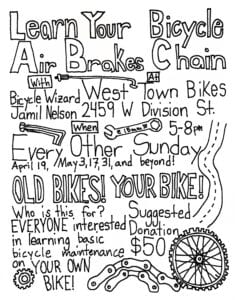 Learn Your Bicycle
Air Brakes Chain
With At
Bicycle Wizard West Town Bikes
Jamil Nelson 2459 W Division St.
When 15mm 5-8pm
Every Other Sunday
April 19, May 3, 17, 31, and beyond!
OLD BIKES! YOUR BIKE!
Who is this for? Suggested
EVERYONE interested Donation
in learning basic $50
bicycle maintenance
on YOUR OWN
BIKE!